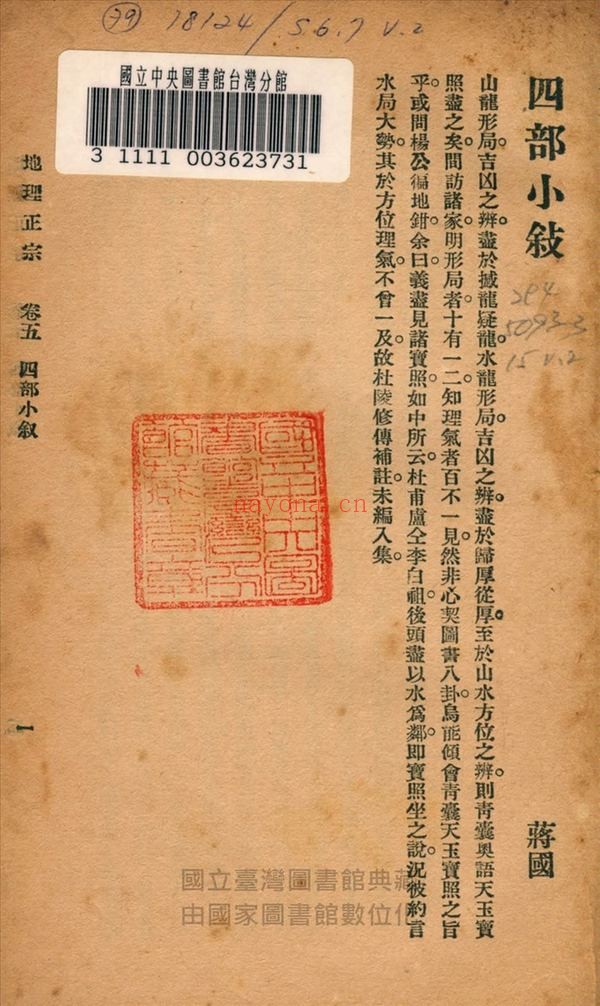 79 78124/5.6.7 V.2
國立中央圖書館台灣分館
3 1111 003623731
四部小敍
蔣國
山龍形局吉凶之辨。盡於撼龍疑龍。水龍形局。吉凶之辨。盡於歸厚從厚。至於山水方位之辨。則靑囊奧語天玉寶
照盡之矣。間訪諸家。明形局者十有一二。知理氣者百不一見。然非心契圖書八卦。烏能傾會靑囊天玉寶照之旨
乎。或問楊公徧地鉗。余曰。義盡見諸寶照。如中所云。杜甫盧仝李白祖。後頭盡以水爲鄰。卽寶照坐之說。況彼約言
水局大勢。其於方位理氣。不曾一及。故杜陵修傳補註。未編入集。
地理正宗 卷五 四部小敍 一
國立中央圖書館臺灣分館藏書章
nayona.cn
國立臺灣圖書館典藏
由國家圖書館數位化